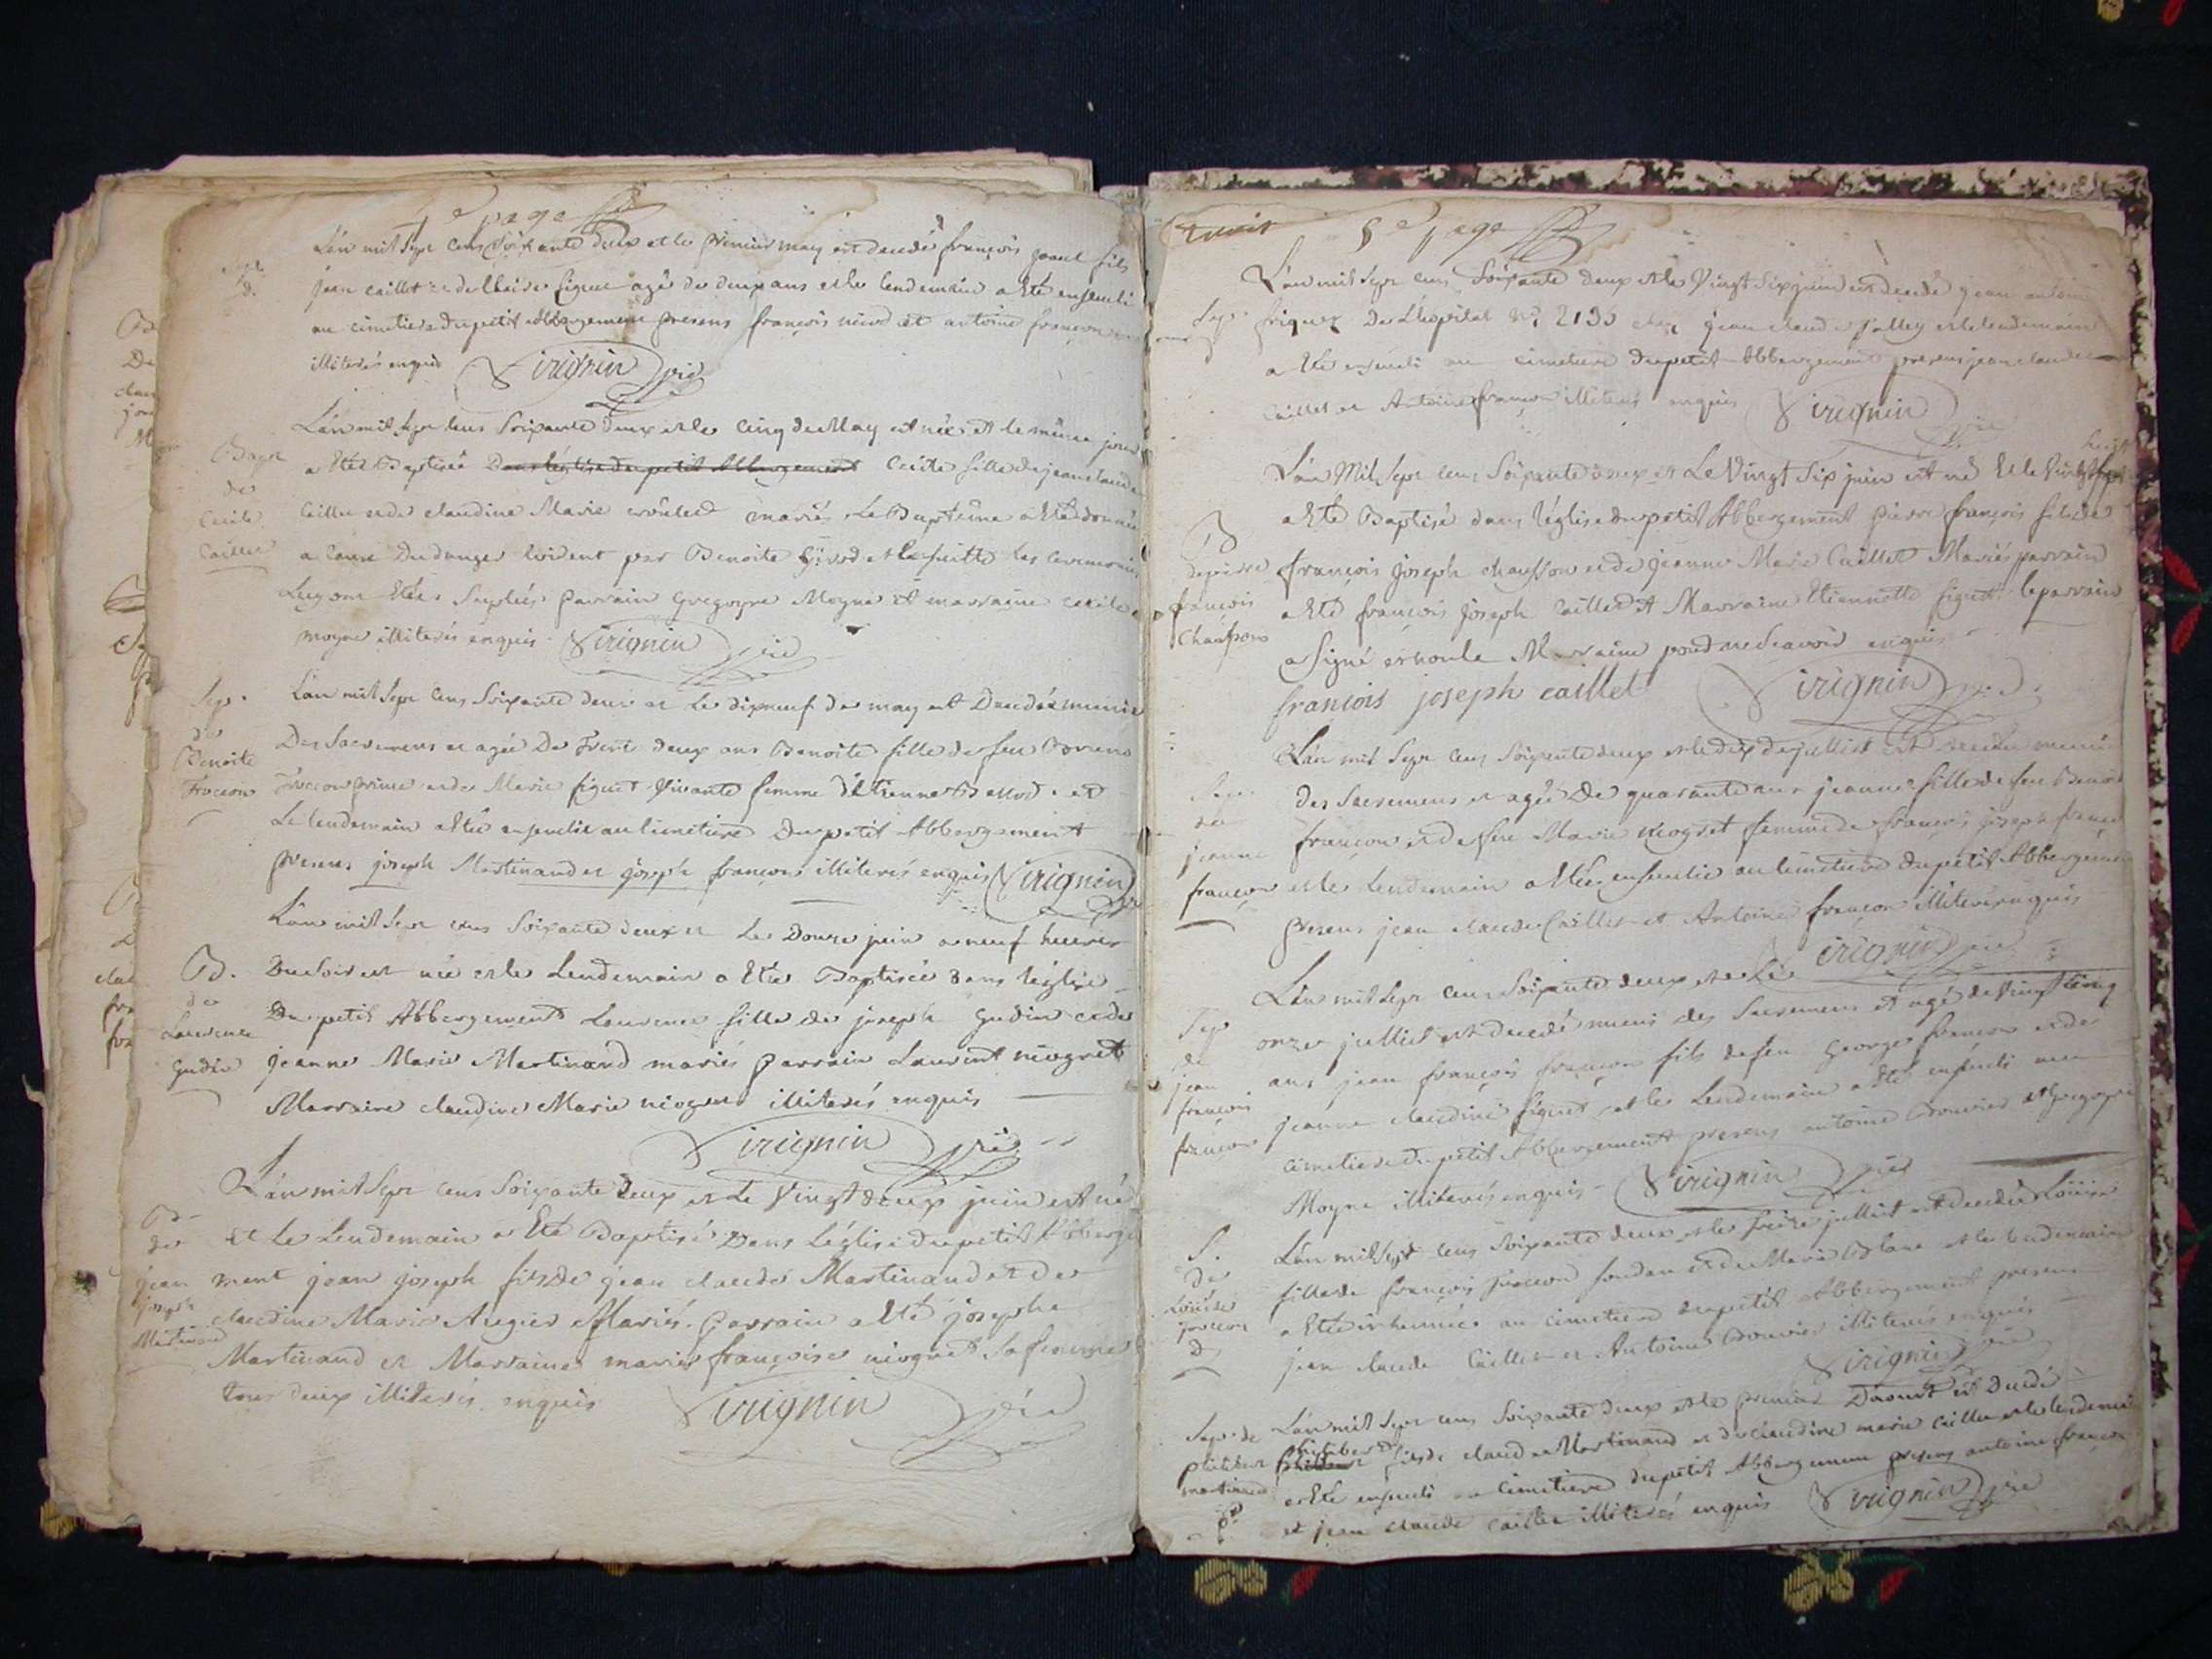 4e page
L'an mil sept cens soixante deux et le premier may est decedé françois fils
jean caillet et de figuet agé de deux ans et le lendemain a eté enseveli
au cimetiere du petit Abbergement presens françois et antoine françon
illiterés enquis Virignin
L'an mil sept cens soixante deux et le cinq de May est née et le même jour
Bapt
a etée Baptisée Dans l'église du petit Abbergement Cecile fille de jean claude
de
Cecile
Caillet
Caillet et de claudine Marie mariés le Baptême a eté donné
a cause du danger evident par Benoite et la suitte les ceremonies
luy ont etées suplées parrain gregoyre Moyne et marraine cecile
moyne illiterés enquis Virignin
Sep.
L'an mil sept cens soixante deux et le dixneuf de may est Decedée munie
de
Benoite
Des Sacremens et agée De trent deux ans Benoite fille de feu
et de Marie figuet vivante femme d'Etienne et
Le lendemain a etée ensevelie au cimetiere Du petit Abbergement
presens joseph Martinand et joseph françon illiterés enquis Virignin
L'an mil sept cens soixante deux et le Douze juin a neuf heures
B.
Du soir est née et le Lendemain a etée Baptisée Dans l'église
de
Laurence
Du petit Abbergement Laurence fille de joseph gudin et de
gudin
jeanne Marie Martinand mariés parrain Laurent niogret
Marraine claudine Marie niogret illiterés enquis
Virignin
L'an mil sept cens soixante deux et le vingt deux juin est né
B.
de
et Le Lendemain a Eté Baptisé Dans l'église du petit Abberge
jean
joseph
ment jean joseph fils de jean claude Martinand et de
Martinand
claudine Marie Augier Mariés. parrain a eté joseph
Martinand et Marraine marie françoise niogret sa femme
tous deux illiterés enquis Virignin
5e page
L'an mil sept cens soixante deux et le vingt six juin est decedé jean antoine
Sep.
De l'hopital No 2133 chez jean claude jalley et le lendemain
a eté enseveli au cimetiere du petit Abbergement presens jean claude
caillet et Antoine françon illiterés enquis Virignin
L'an Mil sept cens soixante deux et Le vingt six juin est né et le vingt huit
B
a eté Baptisé dans l'église du petit Abbergement pierre françois fils de
de pierre
françois
chausson
françois joseph chausson et de jeanne Marie Caillet Mariés parrain
a eté françois joseph caillet et Marraine Etiennette figuet le parrain
a signé et non la Marraine pour ne scavoir enquis
françois joseph caillet Virignin
L'an mil sept cens soixante deux et le dix de juillet est decedée munie
Sep.
de
jeanne
françon
des Sacremens et agée De quarante ans jeanne fille de feu Benoit
françon et de feu Marie niogret femme de françois joseph
et le Lendemain a etée ensevelie au cimetiere du petit Abbergement
presens jean claude Caillet et Antoine françon illiterés enquis
Virignin
L'an mil sept cens soixante deux et le
Sep
de
jean
françois
françon
onze juillet est decedé muni des Sacremens et agé de vingt cinq
ans jean françois françon fils de feu George françon et de
jeanne claudine figuet et le Lendemain a eté enseveli au
cimetiere du petit Abbergement presens antoine Bouvier et gregoyre
Moyne illiterés enquis Virignin
L'an mil sept cens soixante deux et le seize juillet est decedée Louise
S.
de
Louise
fille de françois et de Marie et le lendemain
a etée inhumée au cimetiere du petit Abbergement presens
jean claude Caillet et Antoine Bouvier illiterés enquis
Virignin
L'an mil sept cens soixante deux et le premier Daoust est Decedé
Sep. de
philibert
martinand
philibert fils de claude Martinand et de claudine marie caillet et le lendemain
a eté enseveli au cimetiere du petit Abbergement presens antoine françon
et jean claude caillet illiterés enquis Virignin